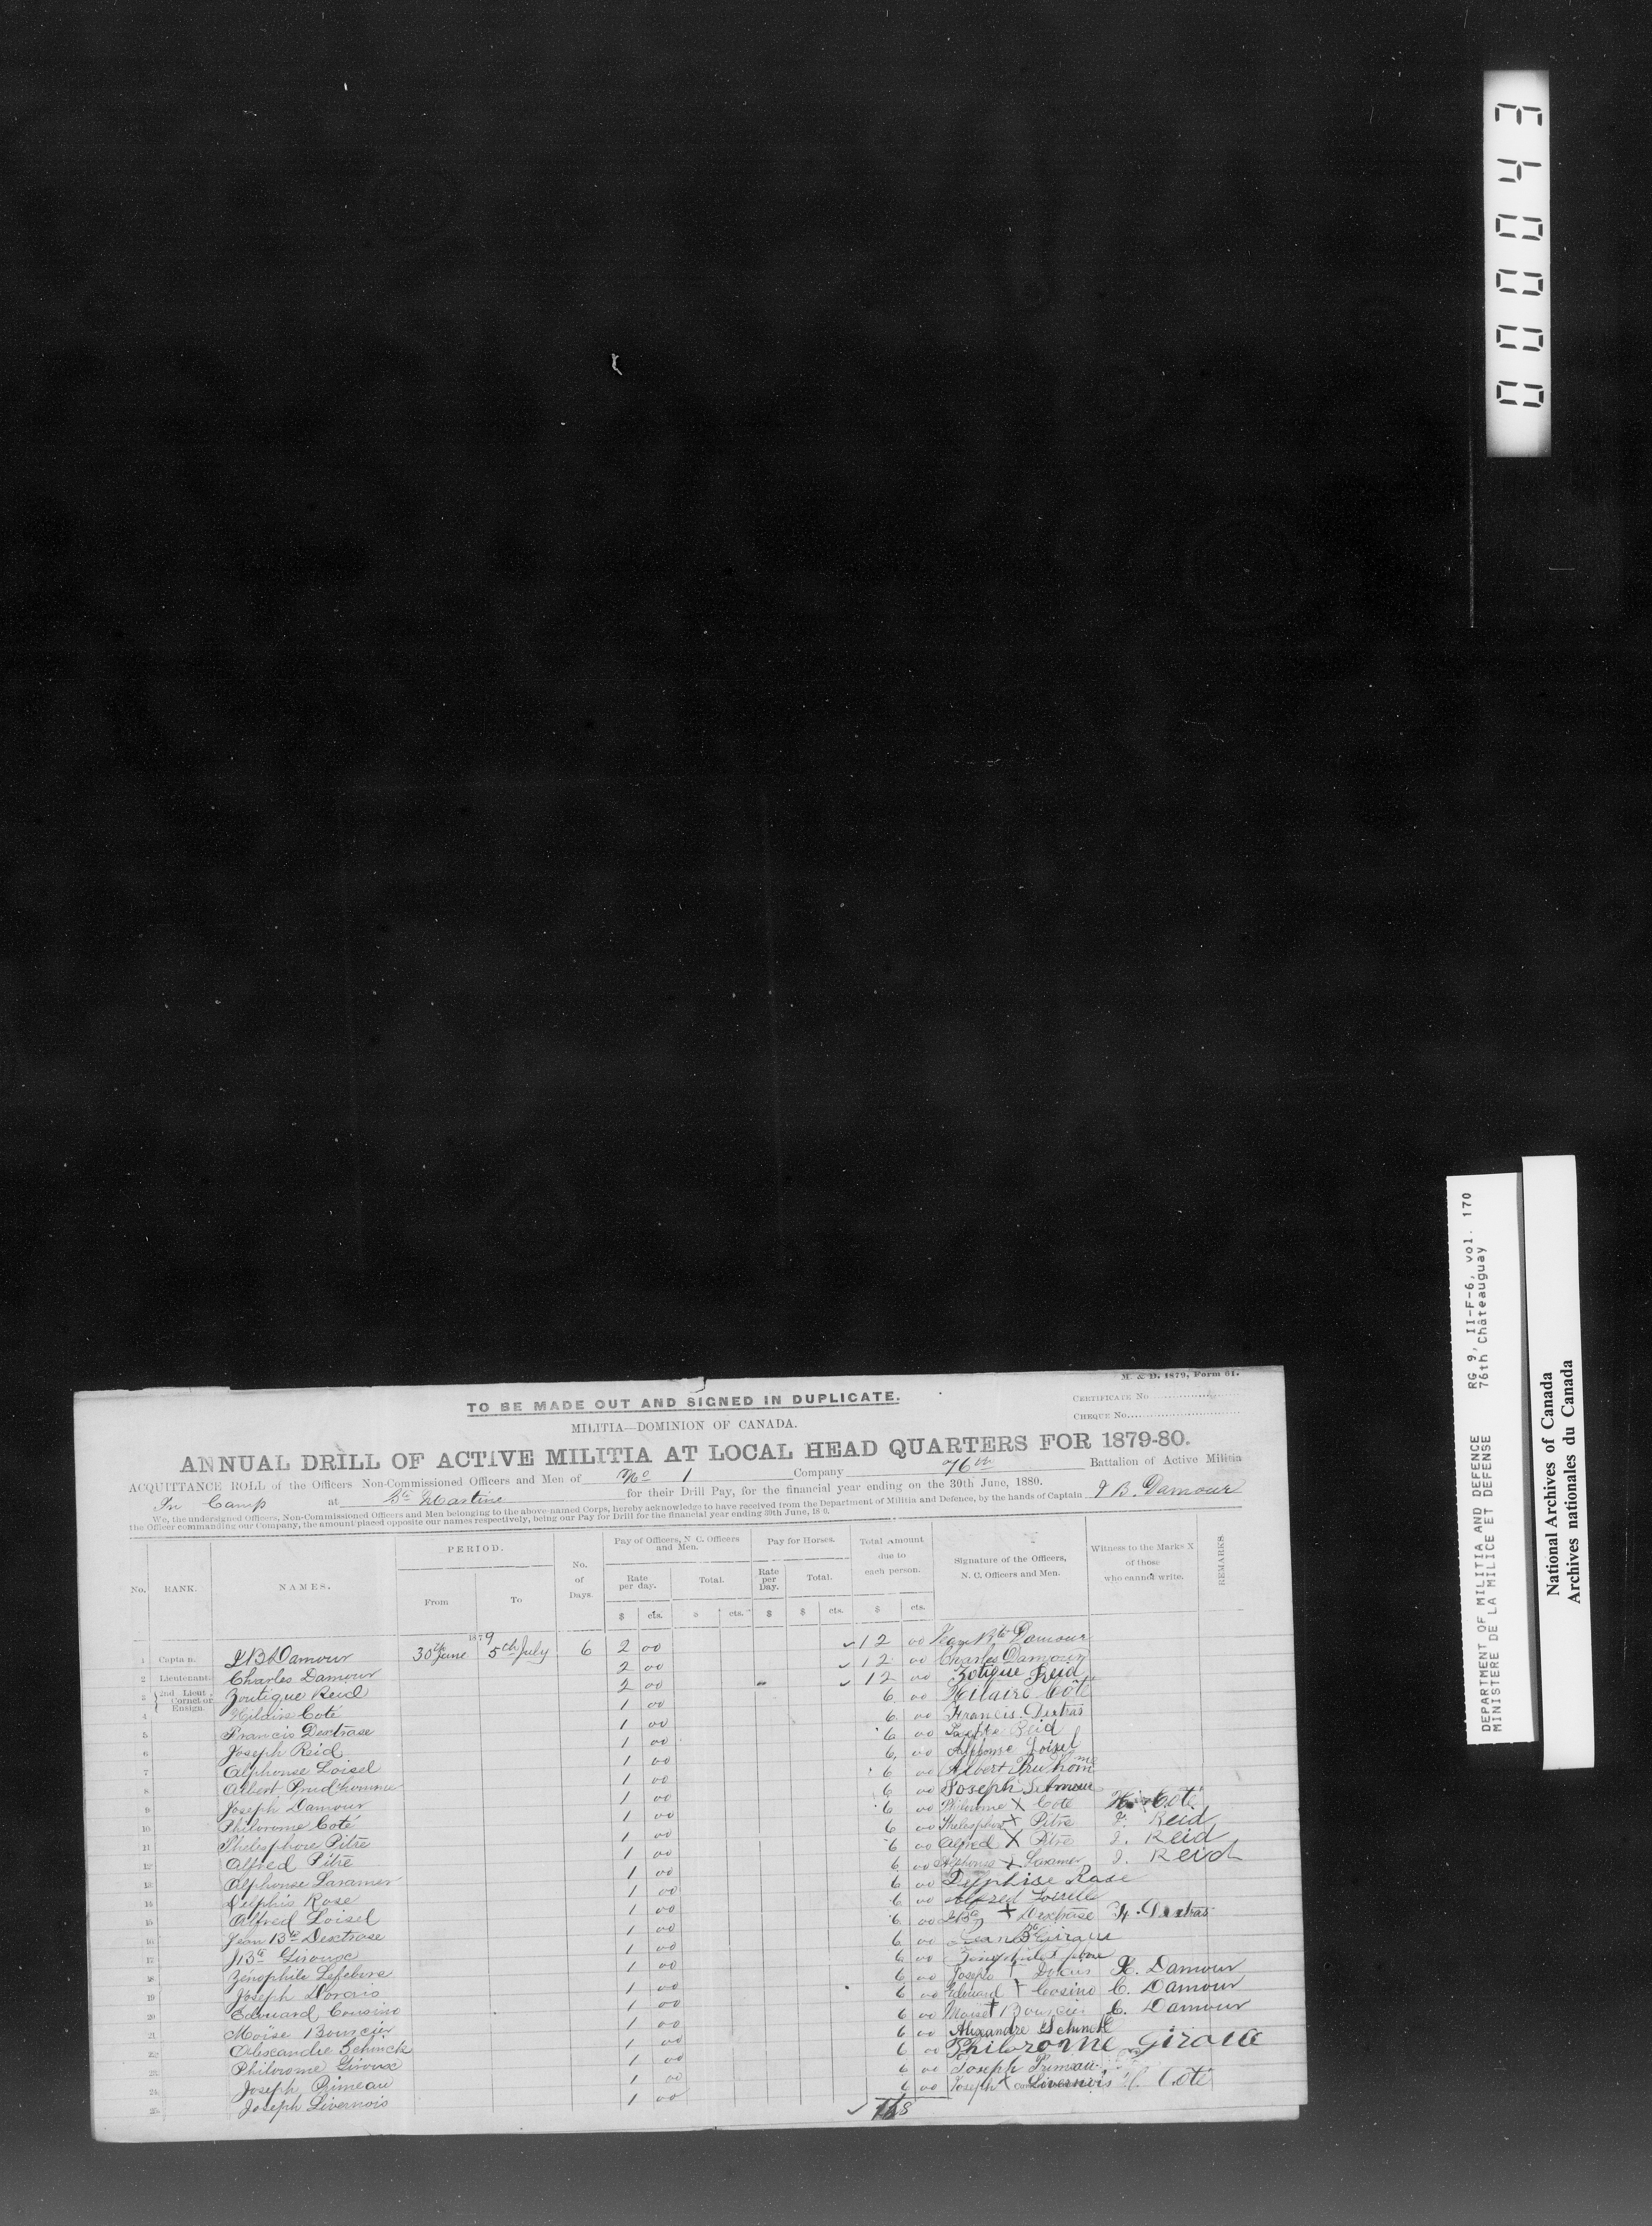 000043
M. & D. 1879, Form 61.
TO BE MADE OUT AND SIGNED IN DUPLICATE.
CERTIFICATE No
MILITIA—DOMINION OF CANADA.
CHEQUE No
ANNUAL DRILL OF ACTIVE MILITIA AT LOCAL HEAD QUARTERS FOR 1879-80.
ACQUITTANCE ROLL of the Officers Non-Commissioned Officers and Men of No 1 Company 76th Battalion of Active Militia
In Camp at Ste Martine for their Drill Pay, for the financial year ending on the 30th June, 1880.
We, the undersigned Officers, Non-Commissioned Officers and Men belonging to the above-named Corps, hereby acknowledge to have received from the Department of Militia and Defence, by the hands of Captain J B. Damour
the Officer commanding our Company, the amount placed opposite our names respectively, being our Pay for Drill for the financial year ending 30th June, 18 0.
No. RANK. NAMES. PERIOD. From To No. of Days. Pay of Officers, N. C. Officers and Men. Rate per day. Total. Pay for Horses. Rate per Day. Total. Total Amount due to each person. Signature of the Officers, N. C. Officers and Men. Witness to the Marks X of those who cannot write. REMARKS.
$ cts. $ cts. $ $ cts. $ cts.
1879
1 Captain. J B Damour 30th June 5th July 6 2 00 12 00 Jean Bte Damour
2 Lieutenant. Charles Damour 2 00 12 00 Charles Damour
3 2nd Lieut Cornet or Ensign. Zoutique Reid 2 00 12 00 Zotique Reid
4 Hilaire Coté 1 00 6 00 Hilaire Côté
5 Francis Dextrase 1 00 6 00 Francis Dextras
6 Joseph Reid 1 00 6 00 Reid
7 Alphonse Loisel 1 00 6 00 Alphonse Loisel
8 Albert Prud'homme 1 00 6 00 Albert Pruhomme
9 Joseph Damour 1 00 6 00 Joseph Damour
10 Philorome Coté 1 00 6 00 Philorome X Coté H Coté
11 Thelesphore Pitre 1 00 6 00 Thelesphore X Pitre J. Reid
12 Alfred Pitre 1 00 6 00 Alfred X Pitre J. Reid
13 Alphonse Laramer 1 00 6 00 Alphonse X Laramer J. Reid
14 Delphis Rose 1 00 6 00 Delphise Rose
15 Alfred Loisel 1 00 6 00 Alfred
16 Jean Bte Dextrase 1 00 6 00 J Bte X Dextrase F. Dextras
17 J Bte Giroux 1 00 6 00 Jean Bte Giroux
18 Zénophile Lefebvre 1 00 6 00
19 Joseph Dorais 1 00 6 00 Joseph X Damour
20 Edouard Cousino 1 00 6 00 Edouard X Cosino C. Damour
21 Moïse Bourcier 1 00 6 00 Moise X Bourcier C. Damour
22 Alexandre Schinck 1 00 6 00 Alexandre Schinck
23 Philorome Giroux 1 00 6 00 Philorome Giroux
24 Joseph Primeau 1 00 6 00 Joseph Primeau
25 Joseph Livernois 1 00 6 00 Joseph X Livernois H. Coté
168
DEPARTMENT OF MILITIA AND DEFENCE RG 9, II-F-6, vol. 170
MINISTERE DE LA MILICE ET DEFENSE 76th Châteauguay
National Archives of Canada
Archives nationales du Canada